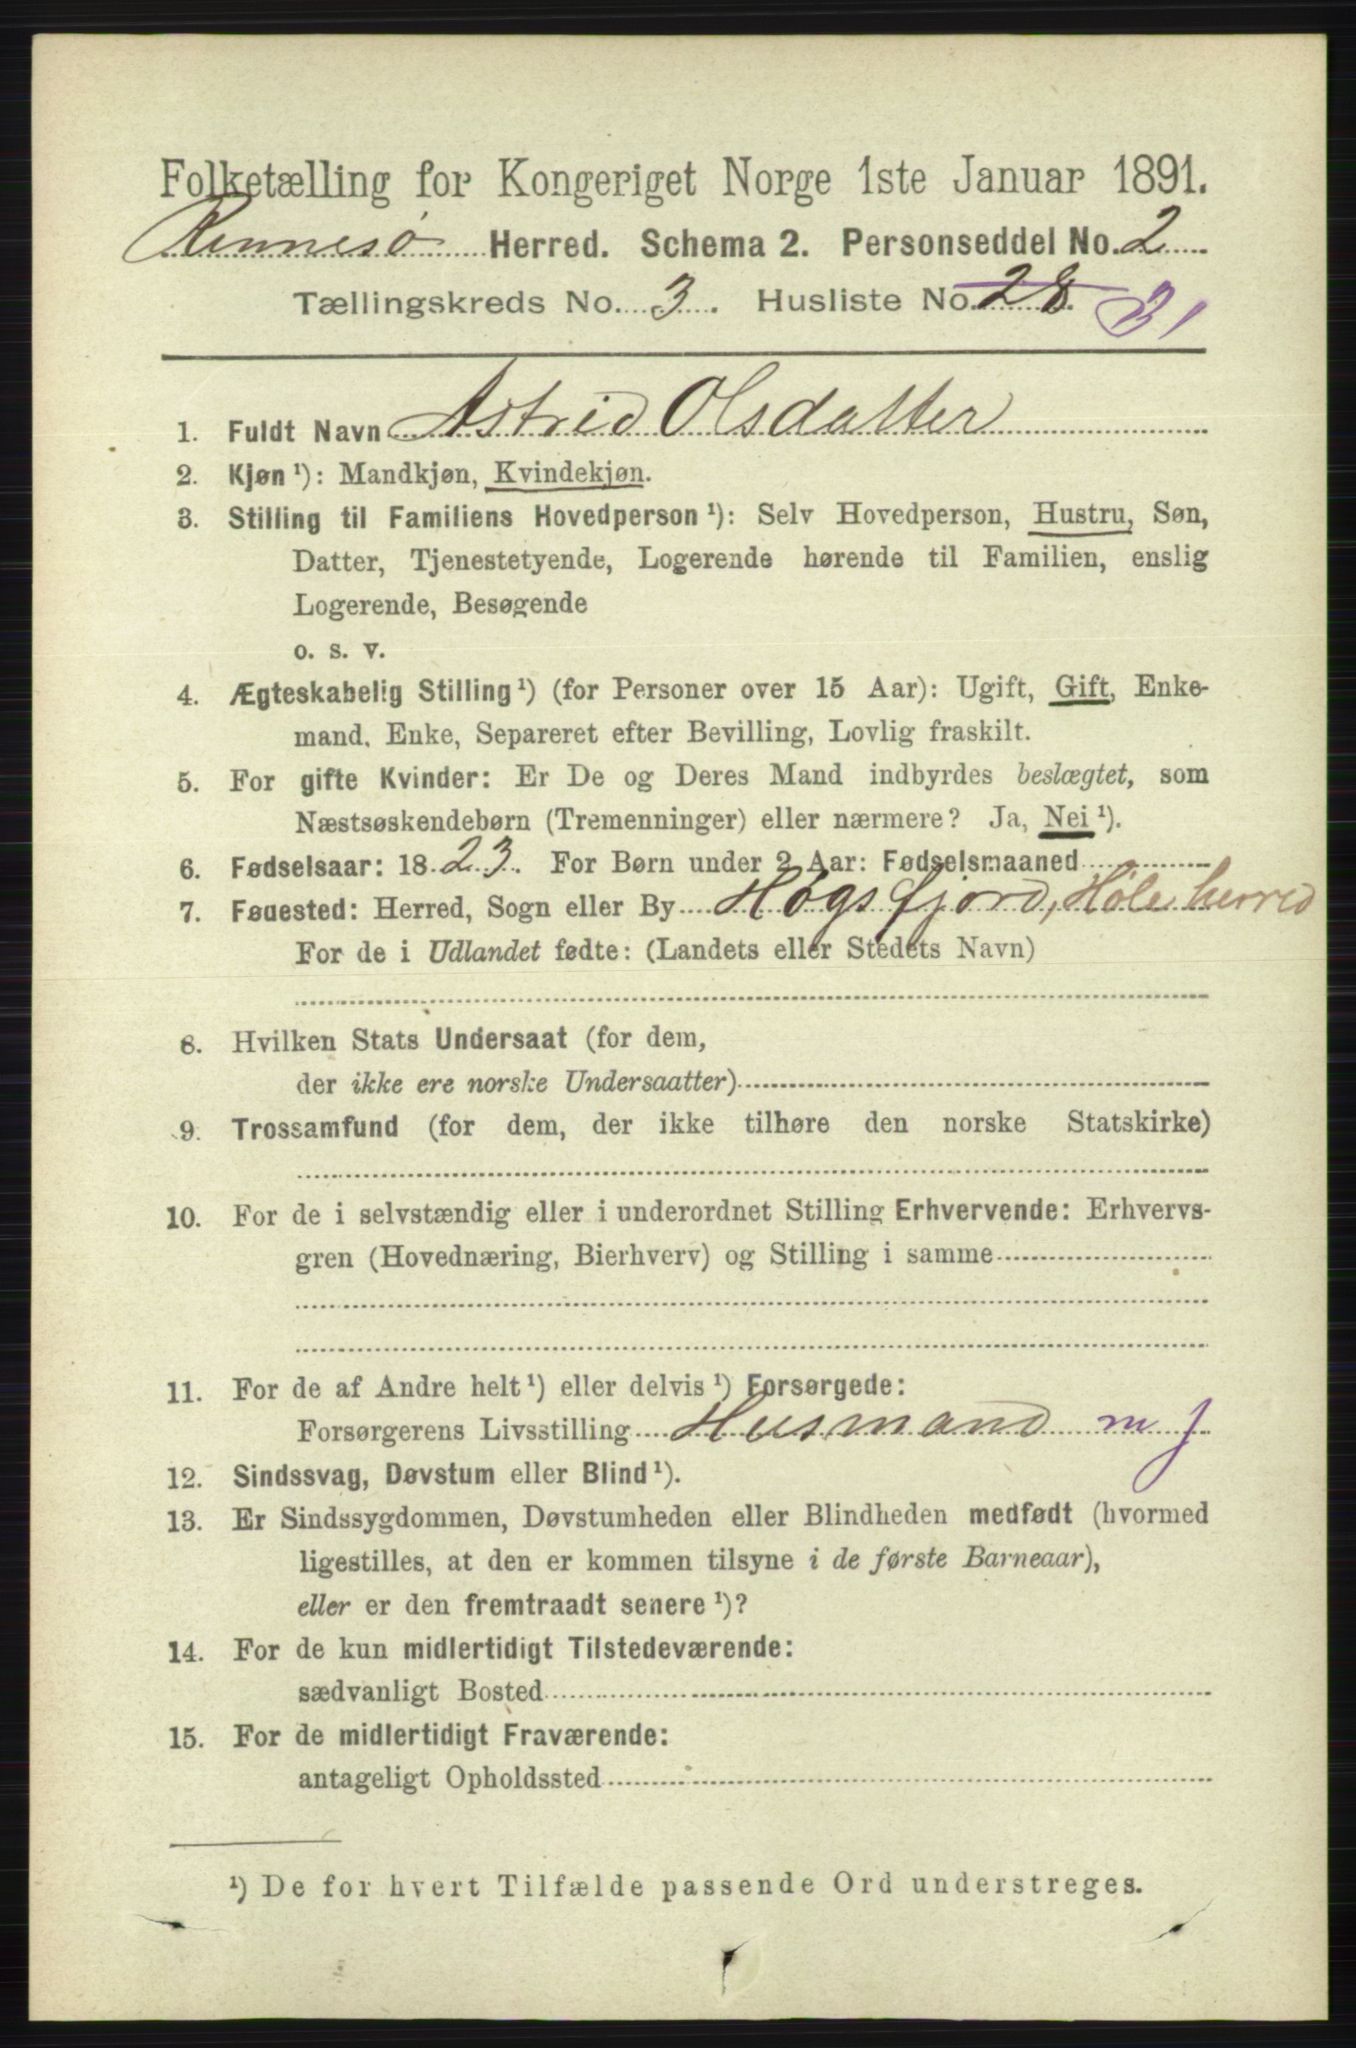 Folketælling for Kongeriget Norge 1ste Januar 1891.
Rennesø Herred. Schema 2. Personseddel No. 2
Tællingskreds No. 3. Husliste No. 28. 31
1. Fuldt Navn Astrid Olsdatter
2. Kjøn ¹): Mandkjøn, Kvindekjøn.
3. Stilling til Familiens Hovedperson ¹): Selv Hovedperson, Hustru, Søn,
Datter, Tjenestetyende, Logerende hørende til Familien, enslig
Logerende, Besøgende
o. s. v.
4. Ægteskabelig Stilling ¹) (for Personer over 15 Aar): Ugift, Gift, Enke-
mand, Enke, Separeret efter Bevilling, Lovlig fraskilt.
5. For gifte Kvinder: Er De og Deres Mand indbyrdes beslægtet, som
Næstsøskendebørn (Tremenninger) eller nærmere? Ja, Nei ¹).
6. Fødselsaar: 1823. For Børn under 2 Aar: Fødselsmaaned
7. Føuested: Herred, Sogn eller By Høgsfjord, Høle herred
For de i Udlandet fødte: (Landets eller Stedets Navn)
8. Hvilken Stats Undersaat (for dem,
der ikke ere norske Undersaatter)
9. Trossamfund (for dem, der ikke tilhøre den norske Statskirke)
10. For de i selvstændig eller i underordnet Stilling Erhvervende: Erhvervs-
gren (Hovednæring, Bierhverv) og Stilling i samme
11. For de af Andre helt ¹) eller delvis ¹) Forsørgede:
Forsørgerens Livsstilling Husmand m j
12. Sindssvag, Døvstum eller Blind ¹).
13. Er Sindssygdommen, Døvstumheden eller Blindheden medfødt (hvormed
ligestilles, at den er kommen tilsyne i de første Barneaar),
eller er den fremtraadt senere ¹)?
14. For de kun midlertidigt Tilstedeværende:
sædvanligt Bosted
15. For de midlertidigt Fraværende:
antageligt Opholdssted
¹) De for hvert Tilfælde passende Ord understreges.